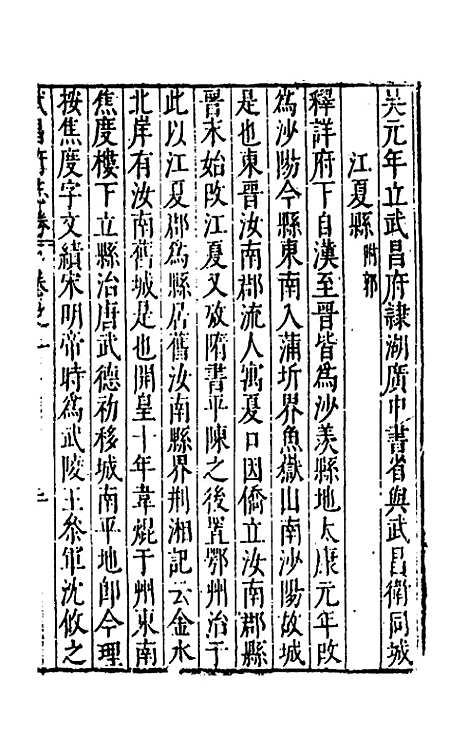 吴元年立武昌府隸湖廣中書省與武昌衛同城
江夏縣附郭
釋詳府下自漢至晉皆為沙羨縣地太康元年改
為沙陽今縣東南入蒲圻界魚嶽山南沙陽故城
是也東晉汝南郡流人寓夏口因僑立汝南郡縣
晉末始改江夏又攷隋書平陳之後置鄂州治于
此以江夏郡為縣居舊汝南縣界荆湘記云金水
北岸有汝南舊城是也開皇十年韋焜于州東南
焦度樓下立縣治唐武德初移城南平地郎今理
按焦度字文績宋明帝時為武陵王參軍沈攸之
武昌府志卷